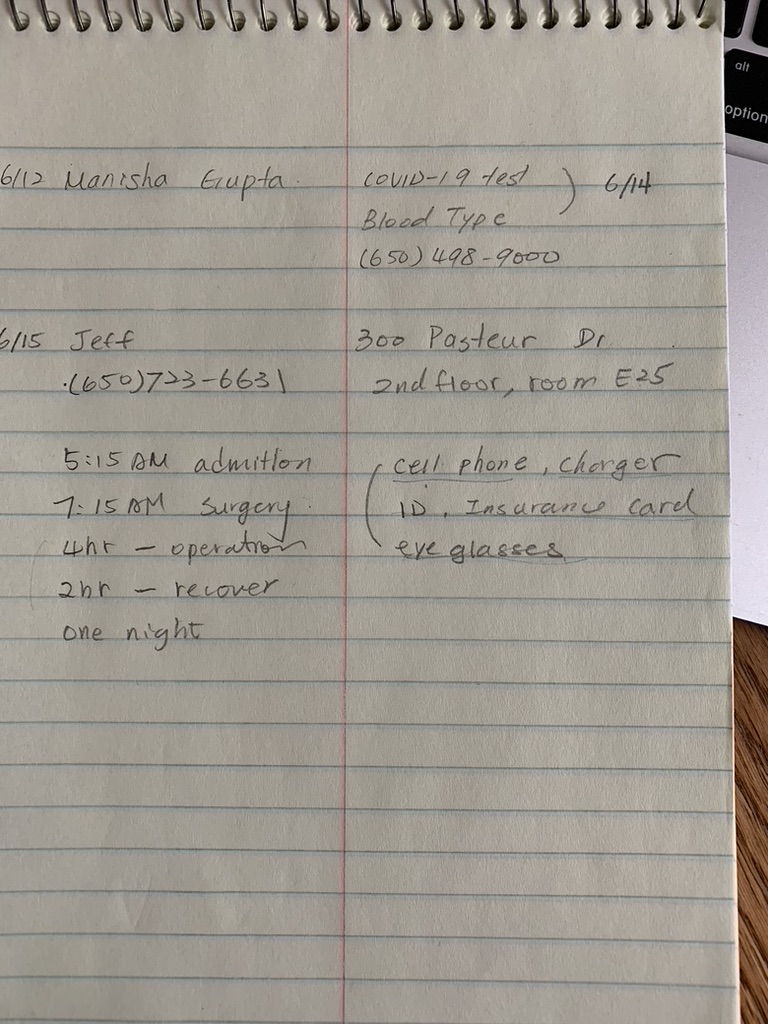 alt
option
6/12 Manisha Gupta.
COVID-19 test ) 6/14
Blood Type
(650) 498-9000
6/15 Jeff
(650)723-6631
300 Pasteur Dr.
2nd floor, room E25
5:15 AM admition
7:15 AM surgery
4hr - operation
2hr - recover
one night
cell phone, charger
ID, Insurance card
eye glasses